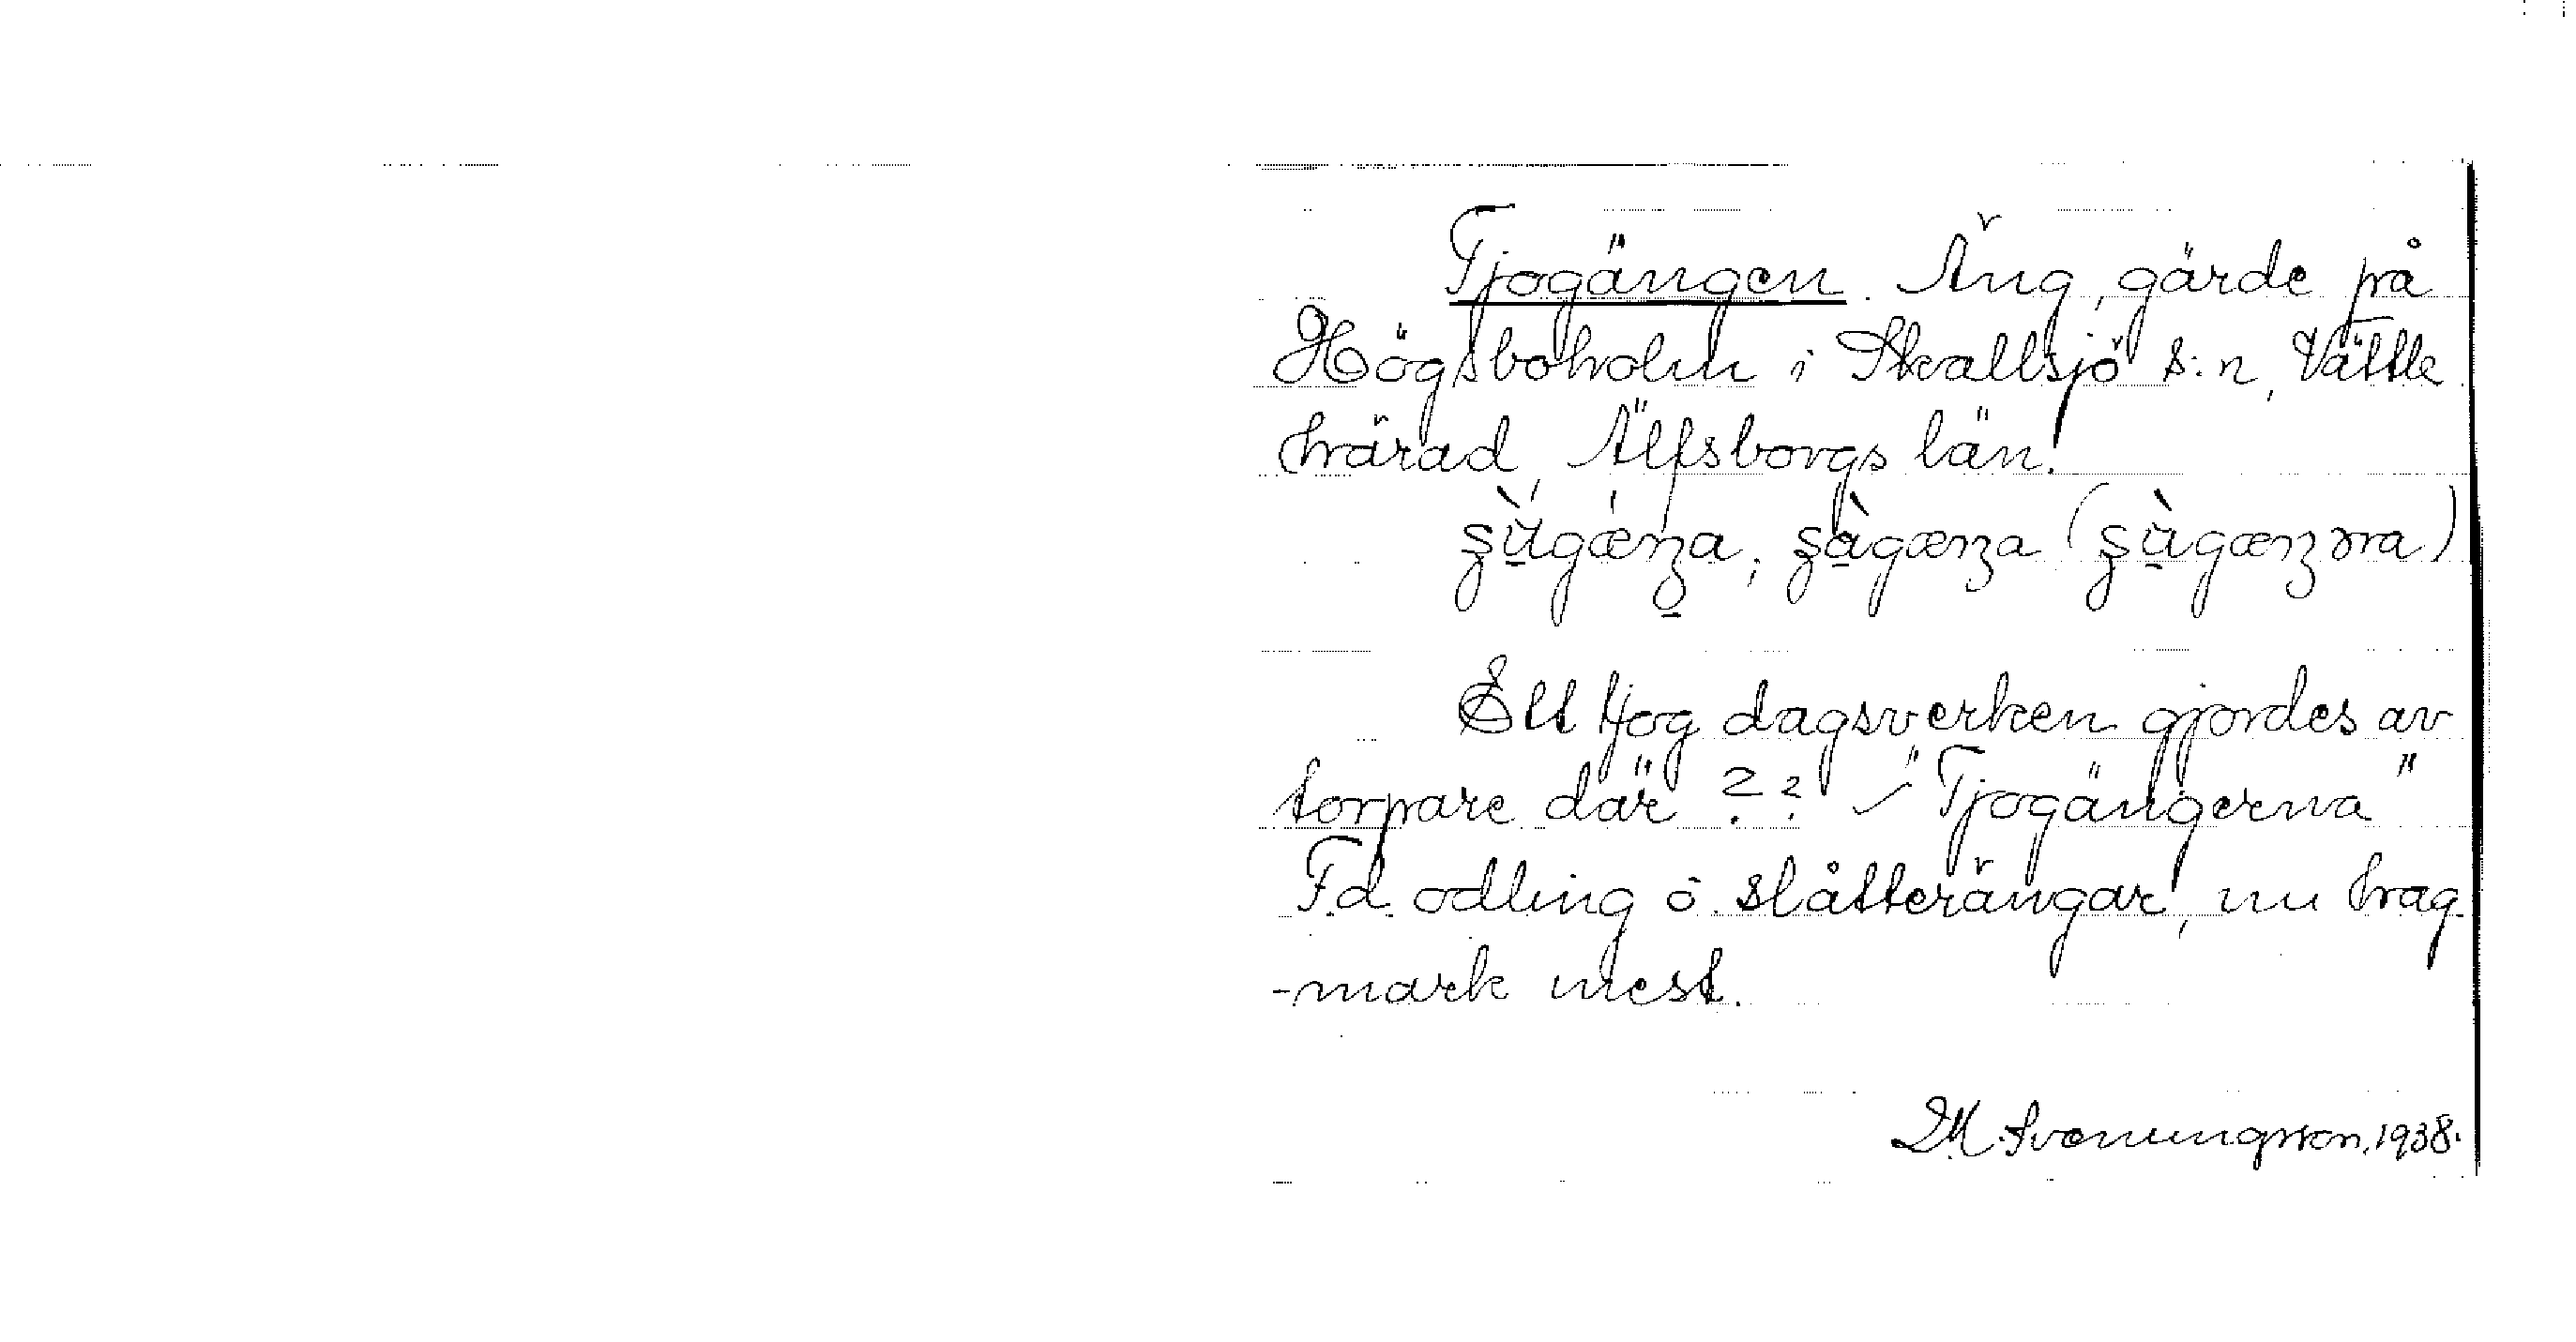 Tjogängen. Äng, gärde på
Högsboholm i Skallsjö s:n, Vättle
härad, Älfsborgs län.
Ett tjog dagsverken gjordes av
torpare där ?? - "Tjogängerna"
F.d. odling o. slåtterängar, nu hag-
-mark mest.
D.M. Svenningsson, 1938.